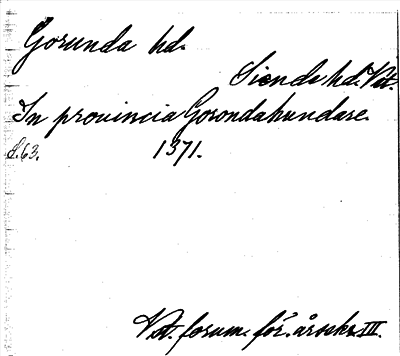 Gorunda hd.
Siende hd. Vst.
In provincia Gorondahundare.
S. 63. 1371.
Vst. fornm. för. årsskr. III.